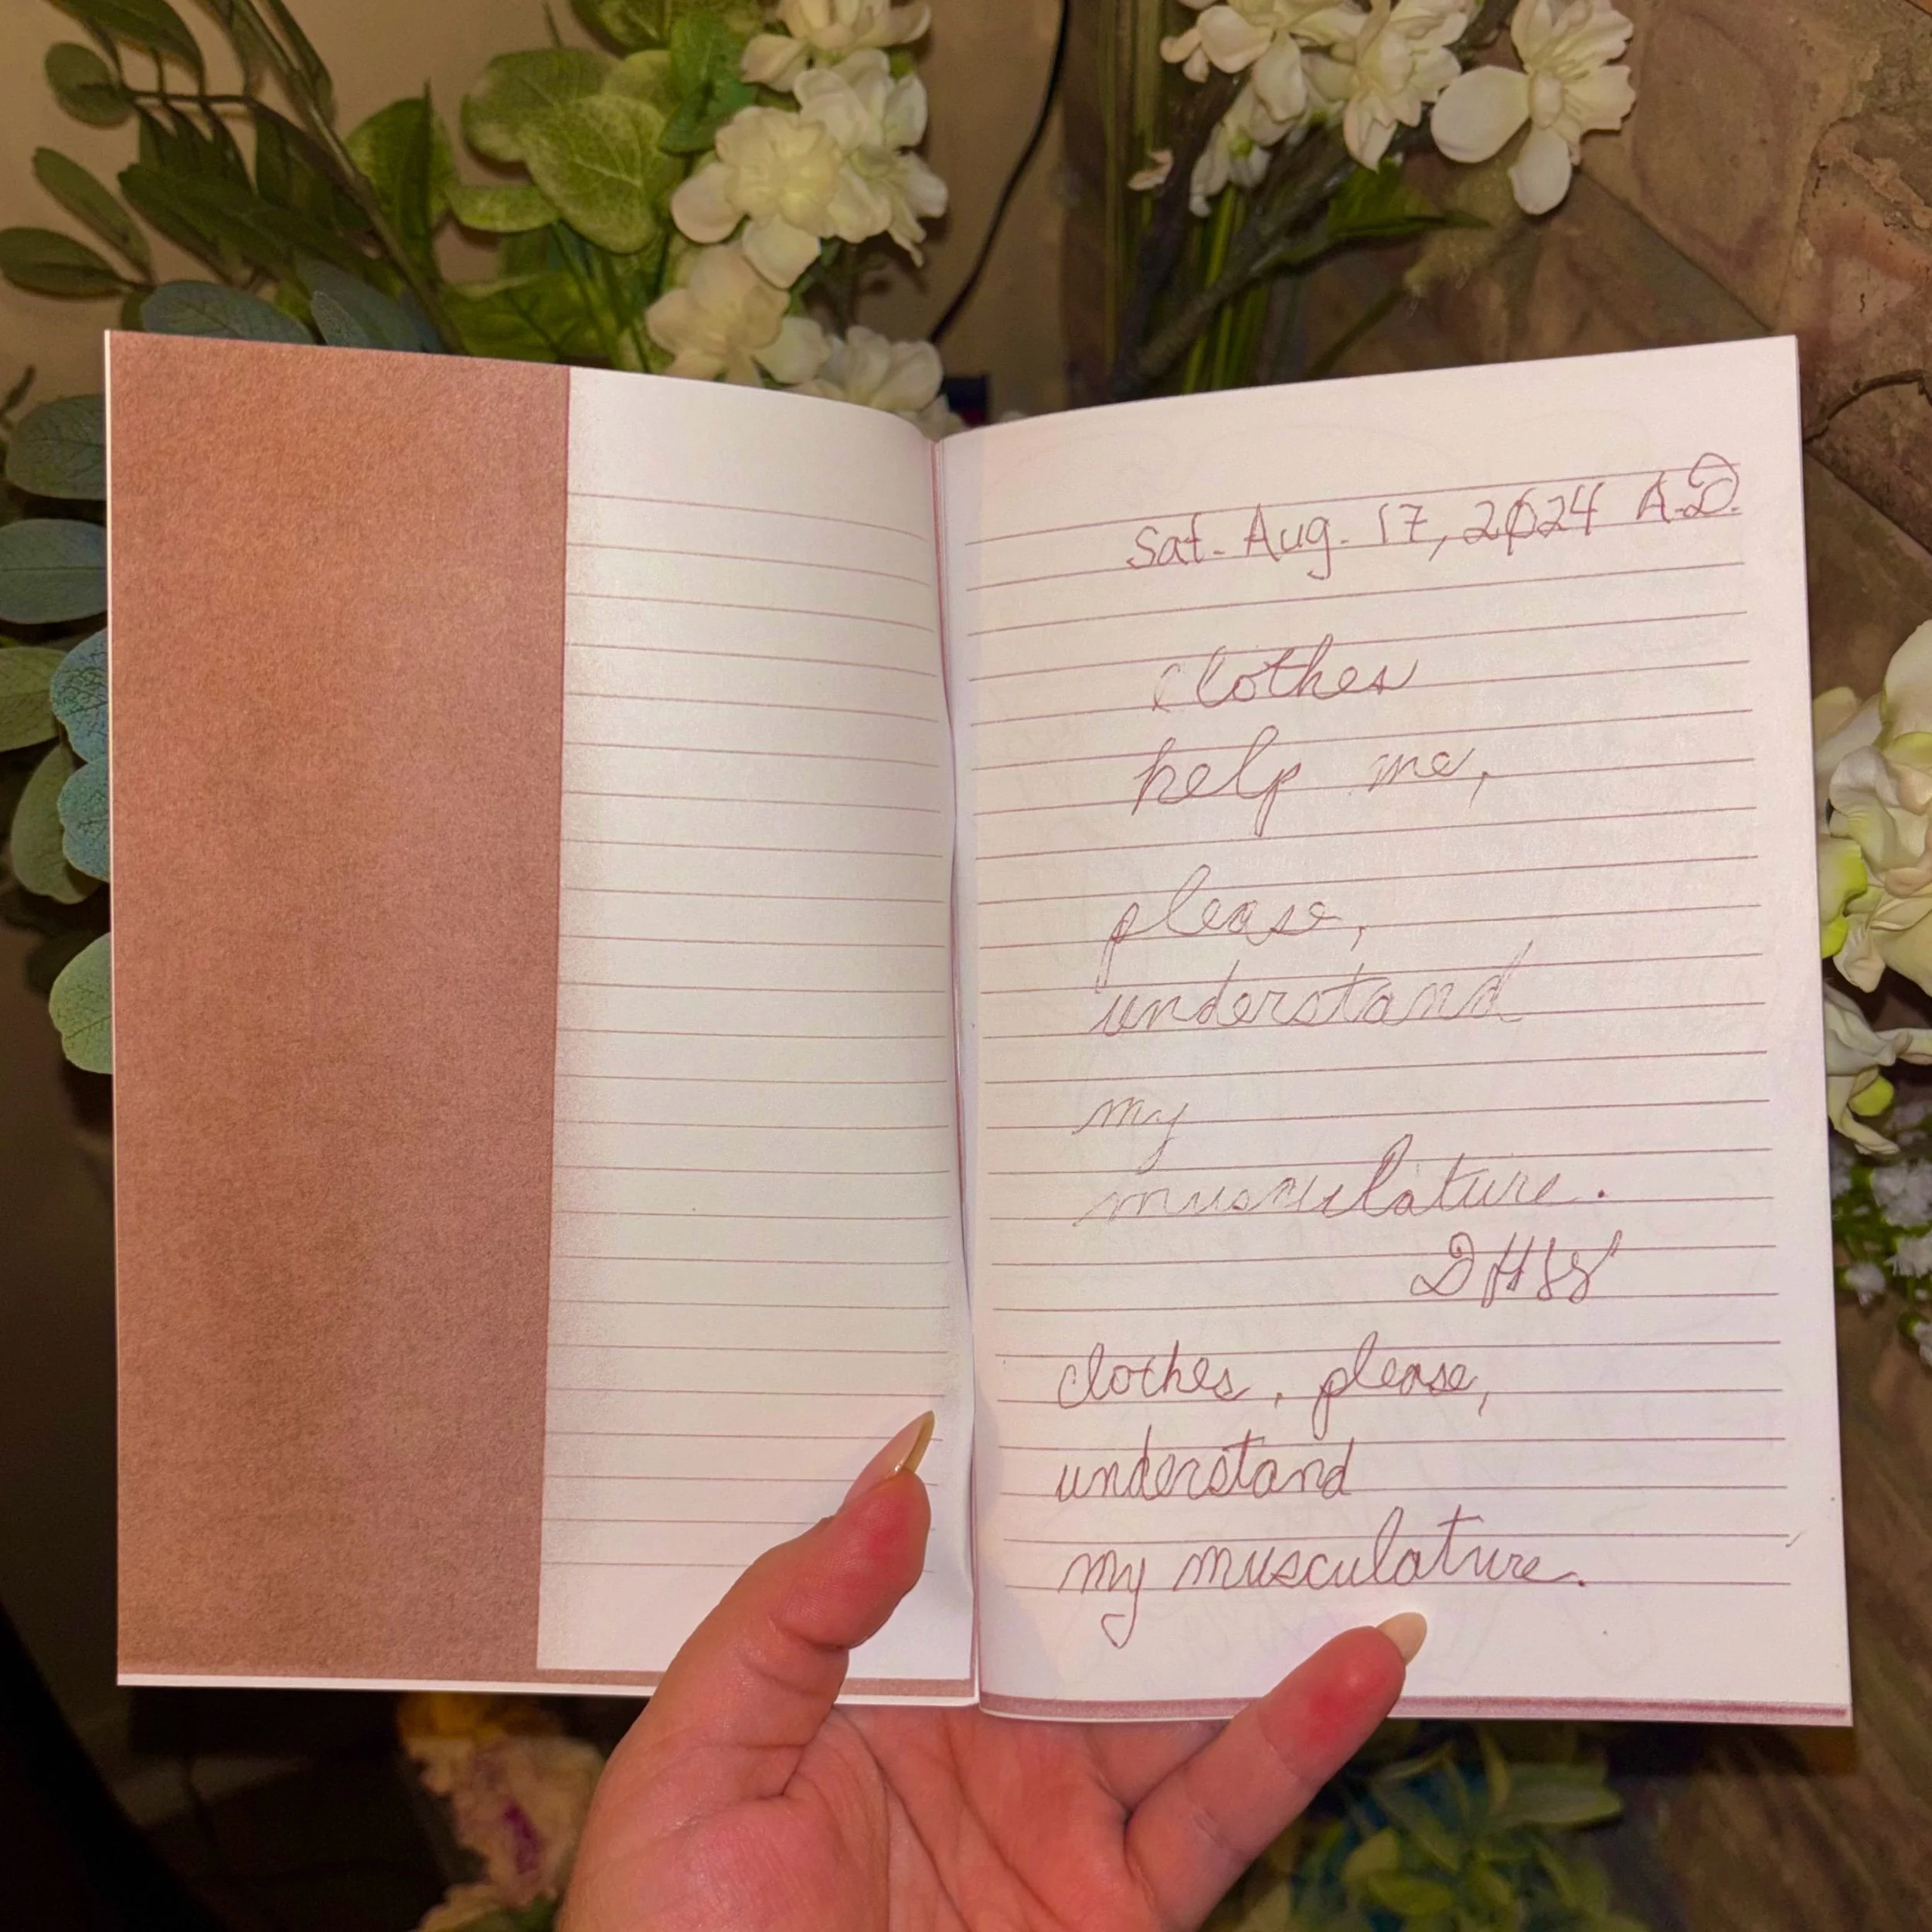 Sat. Aug. 17, 2024 A.D.
clothes
help me,
please,
understand
my
musculature.
DHSS
clothes, please,
understand
my musculature.